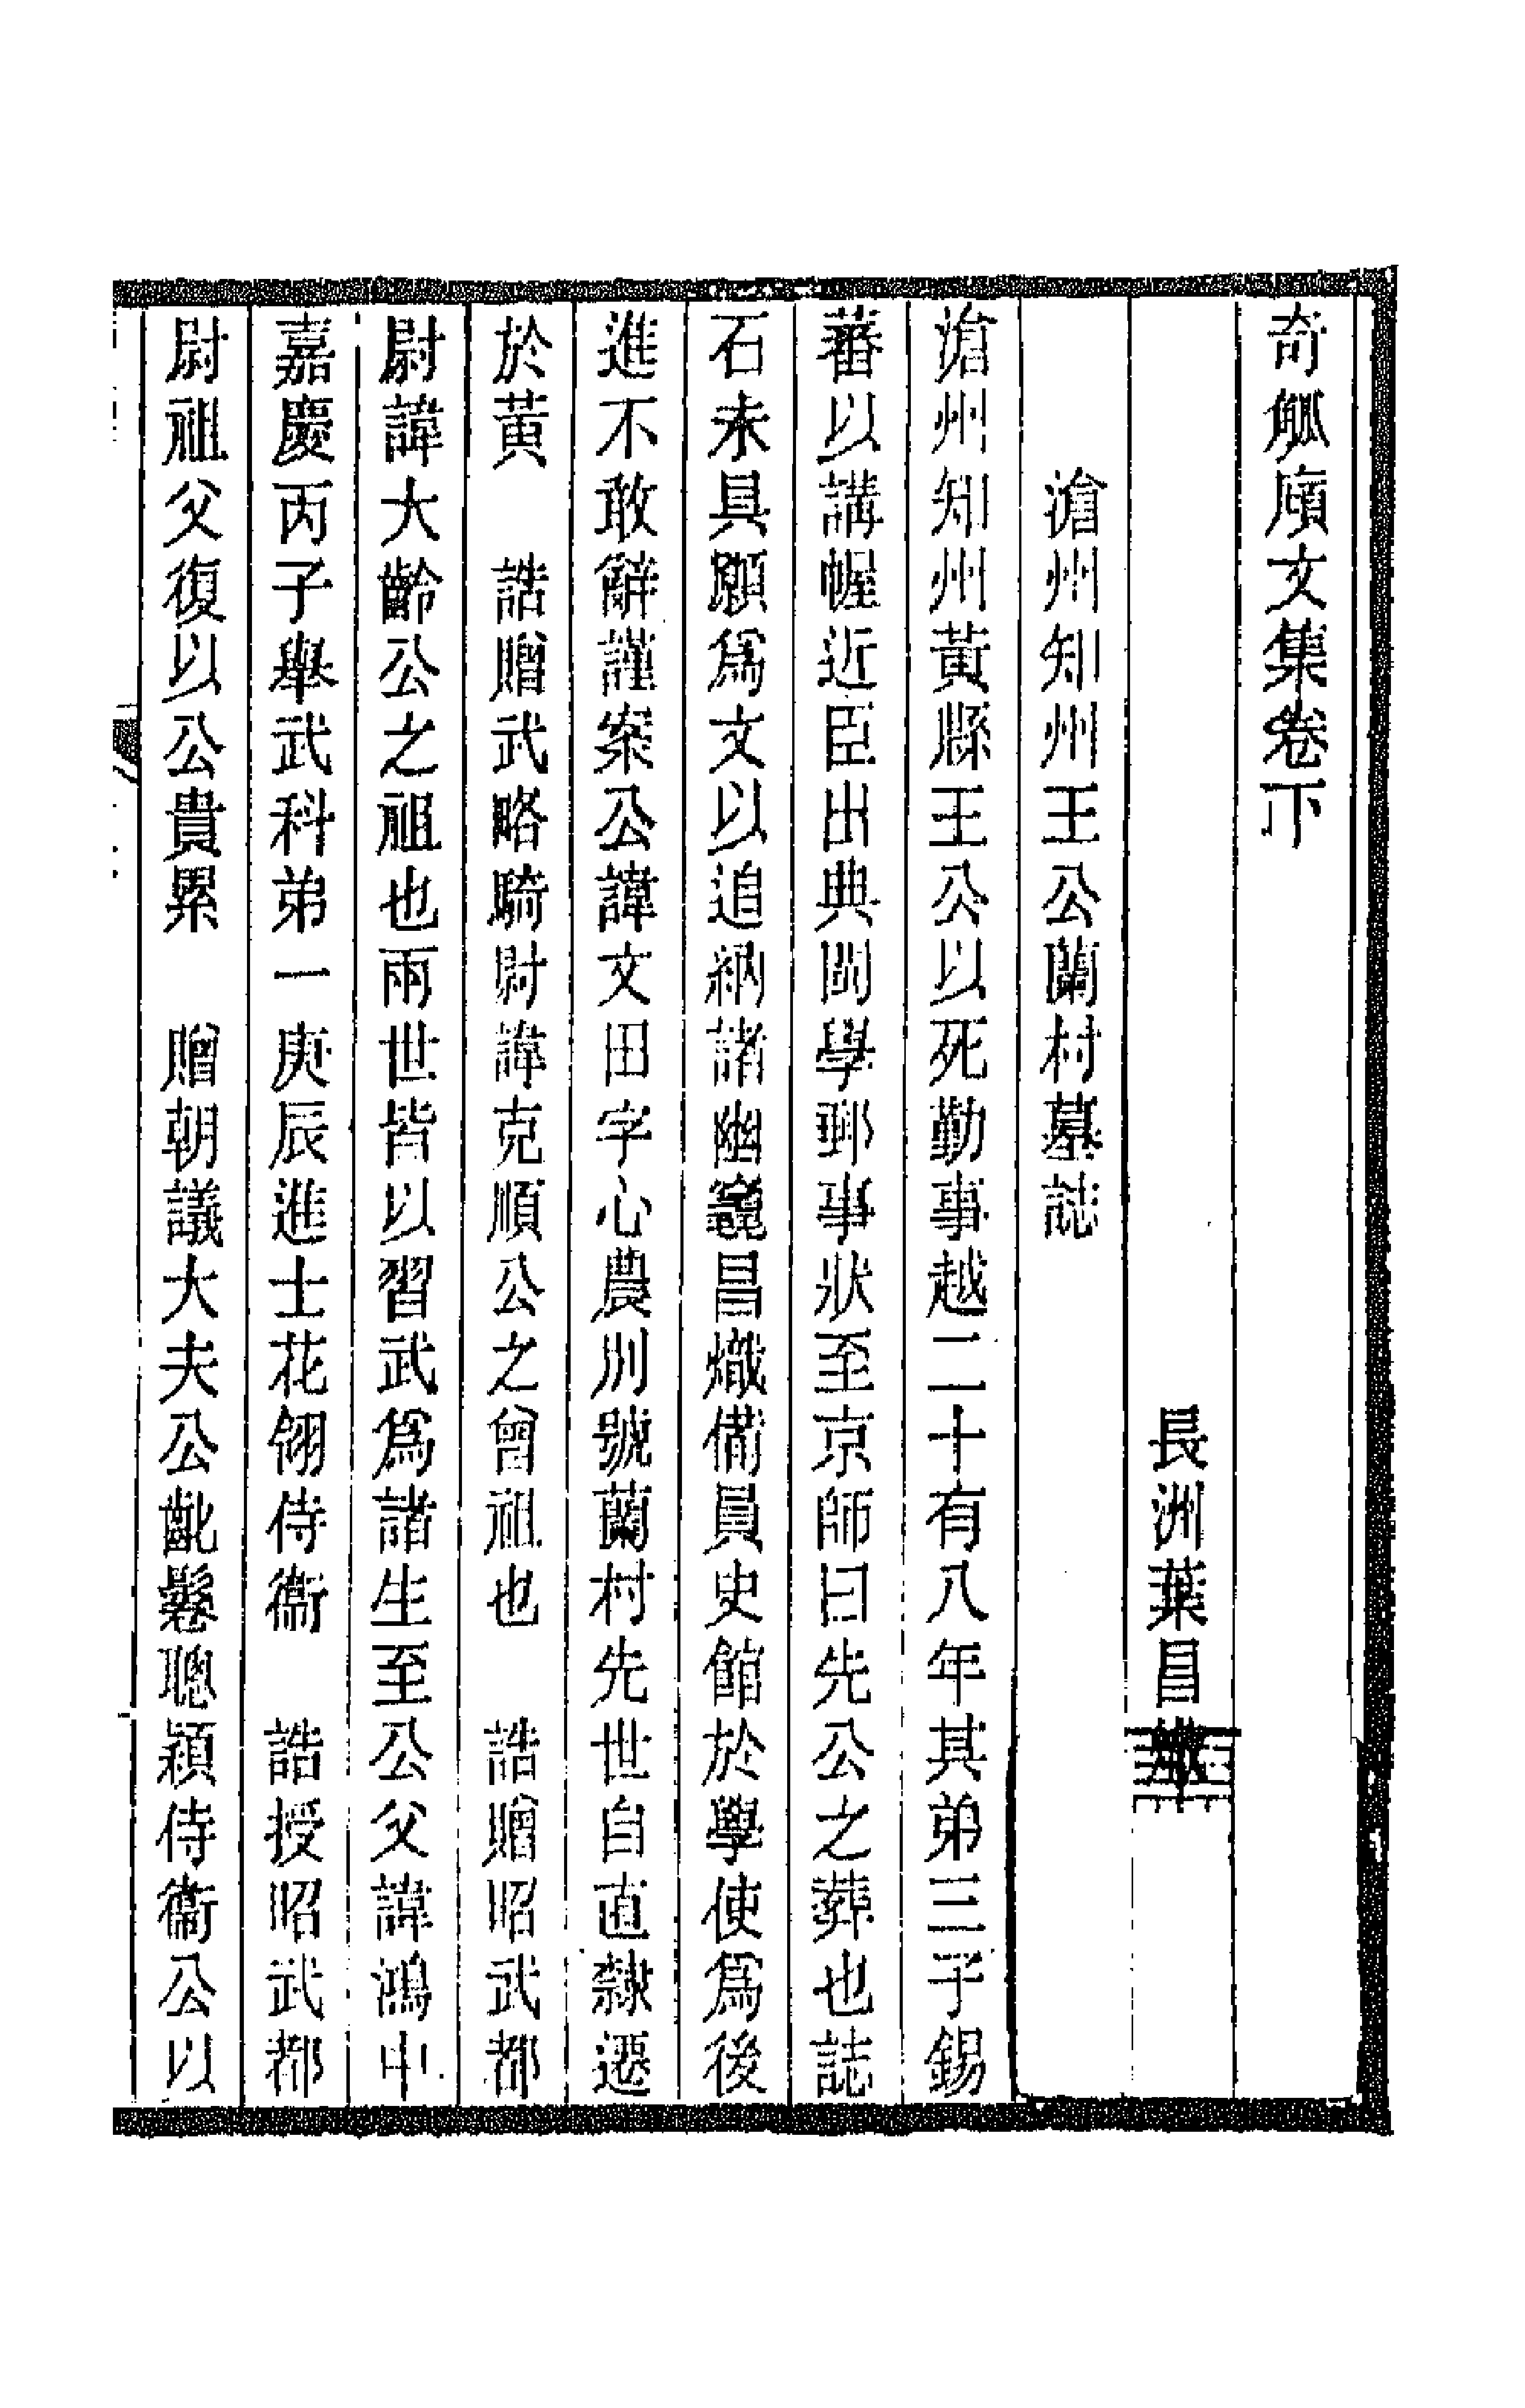 奇觚廎文集卷下
長洲葉昌熾
滄州知州王公蘭村墓誌
滄州知州黃縣王公以死勤事越二十有八年其弟三子錫
蕃以講幄近臣出典閩學郵事狀至京師曰先公之葬也誌
石未具願爲文以追納諸幽竁昌熾備員史館於學使爲後
進不敢辭謹案公諱文田字心農別號蘭村先世自直隸遷
於黃　誥贈武略騎尉諱克順公之曾祖也　誥贈昭武都
尉諱大齡公之祖也兩世皆以習武爲諸生至公父諱鴻中
嘉慶丙子舉武科弟一庚辰進士花翎侍衞　誥授昭武都
尉祖父復以公貴累　贈朝議大夫公齔鬈聰穎侍衞公以